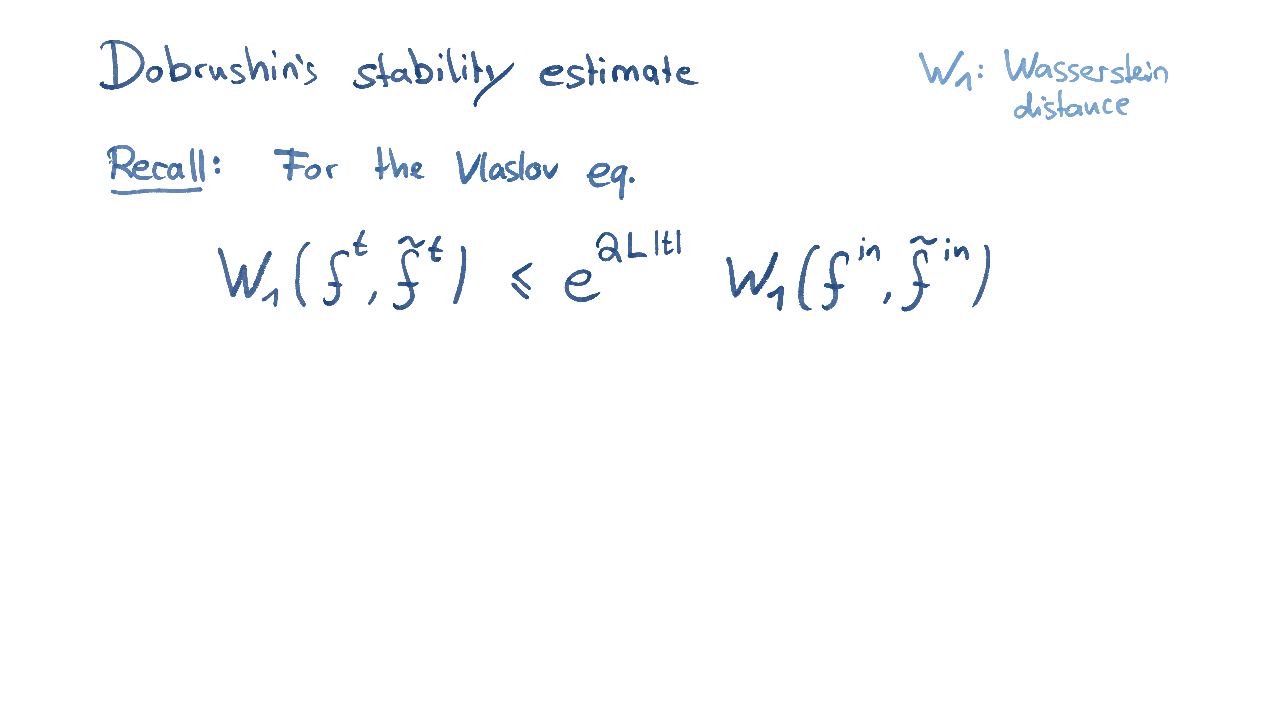 Dobrushin's stability estimate
W₁: Wasserstein
distance
Recall: For the Vlaslov eq.
W₁(fᵗ, f̃ᵗ) ⩽ e^{2L|t|} W₁(f^{in}, f̃^{in})